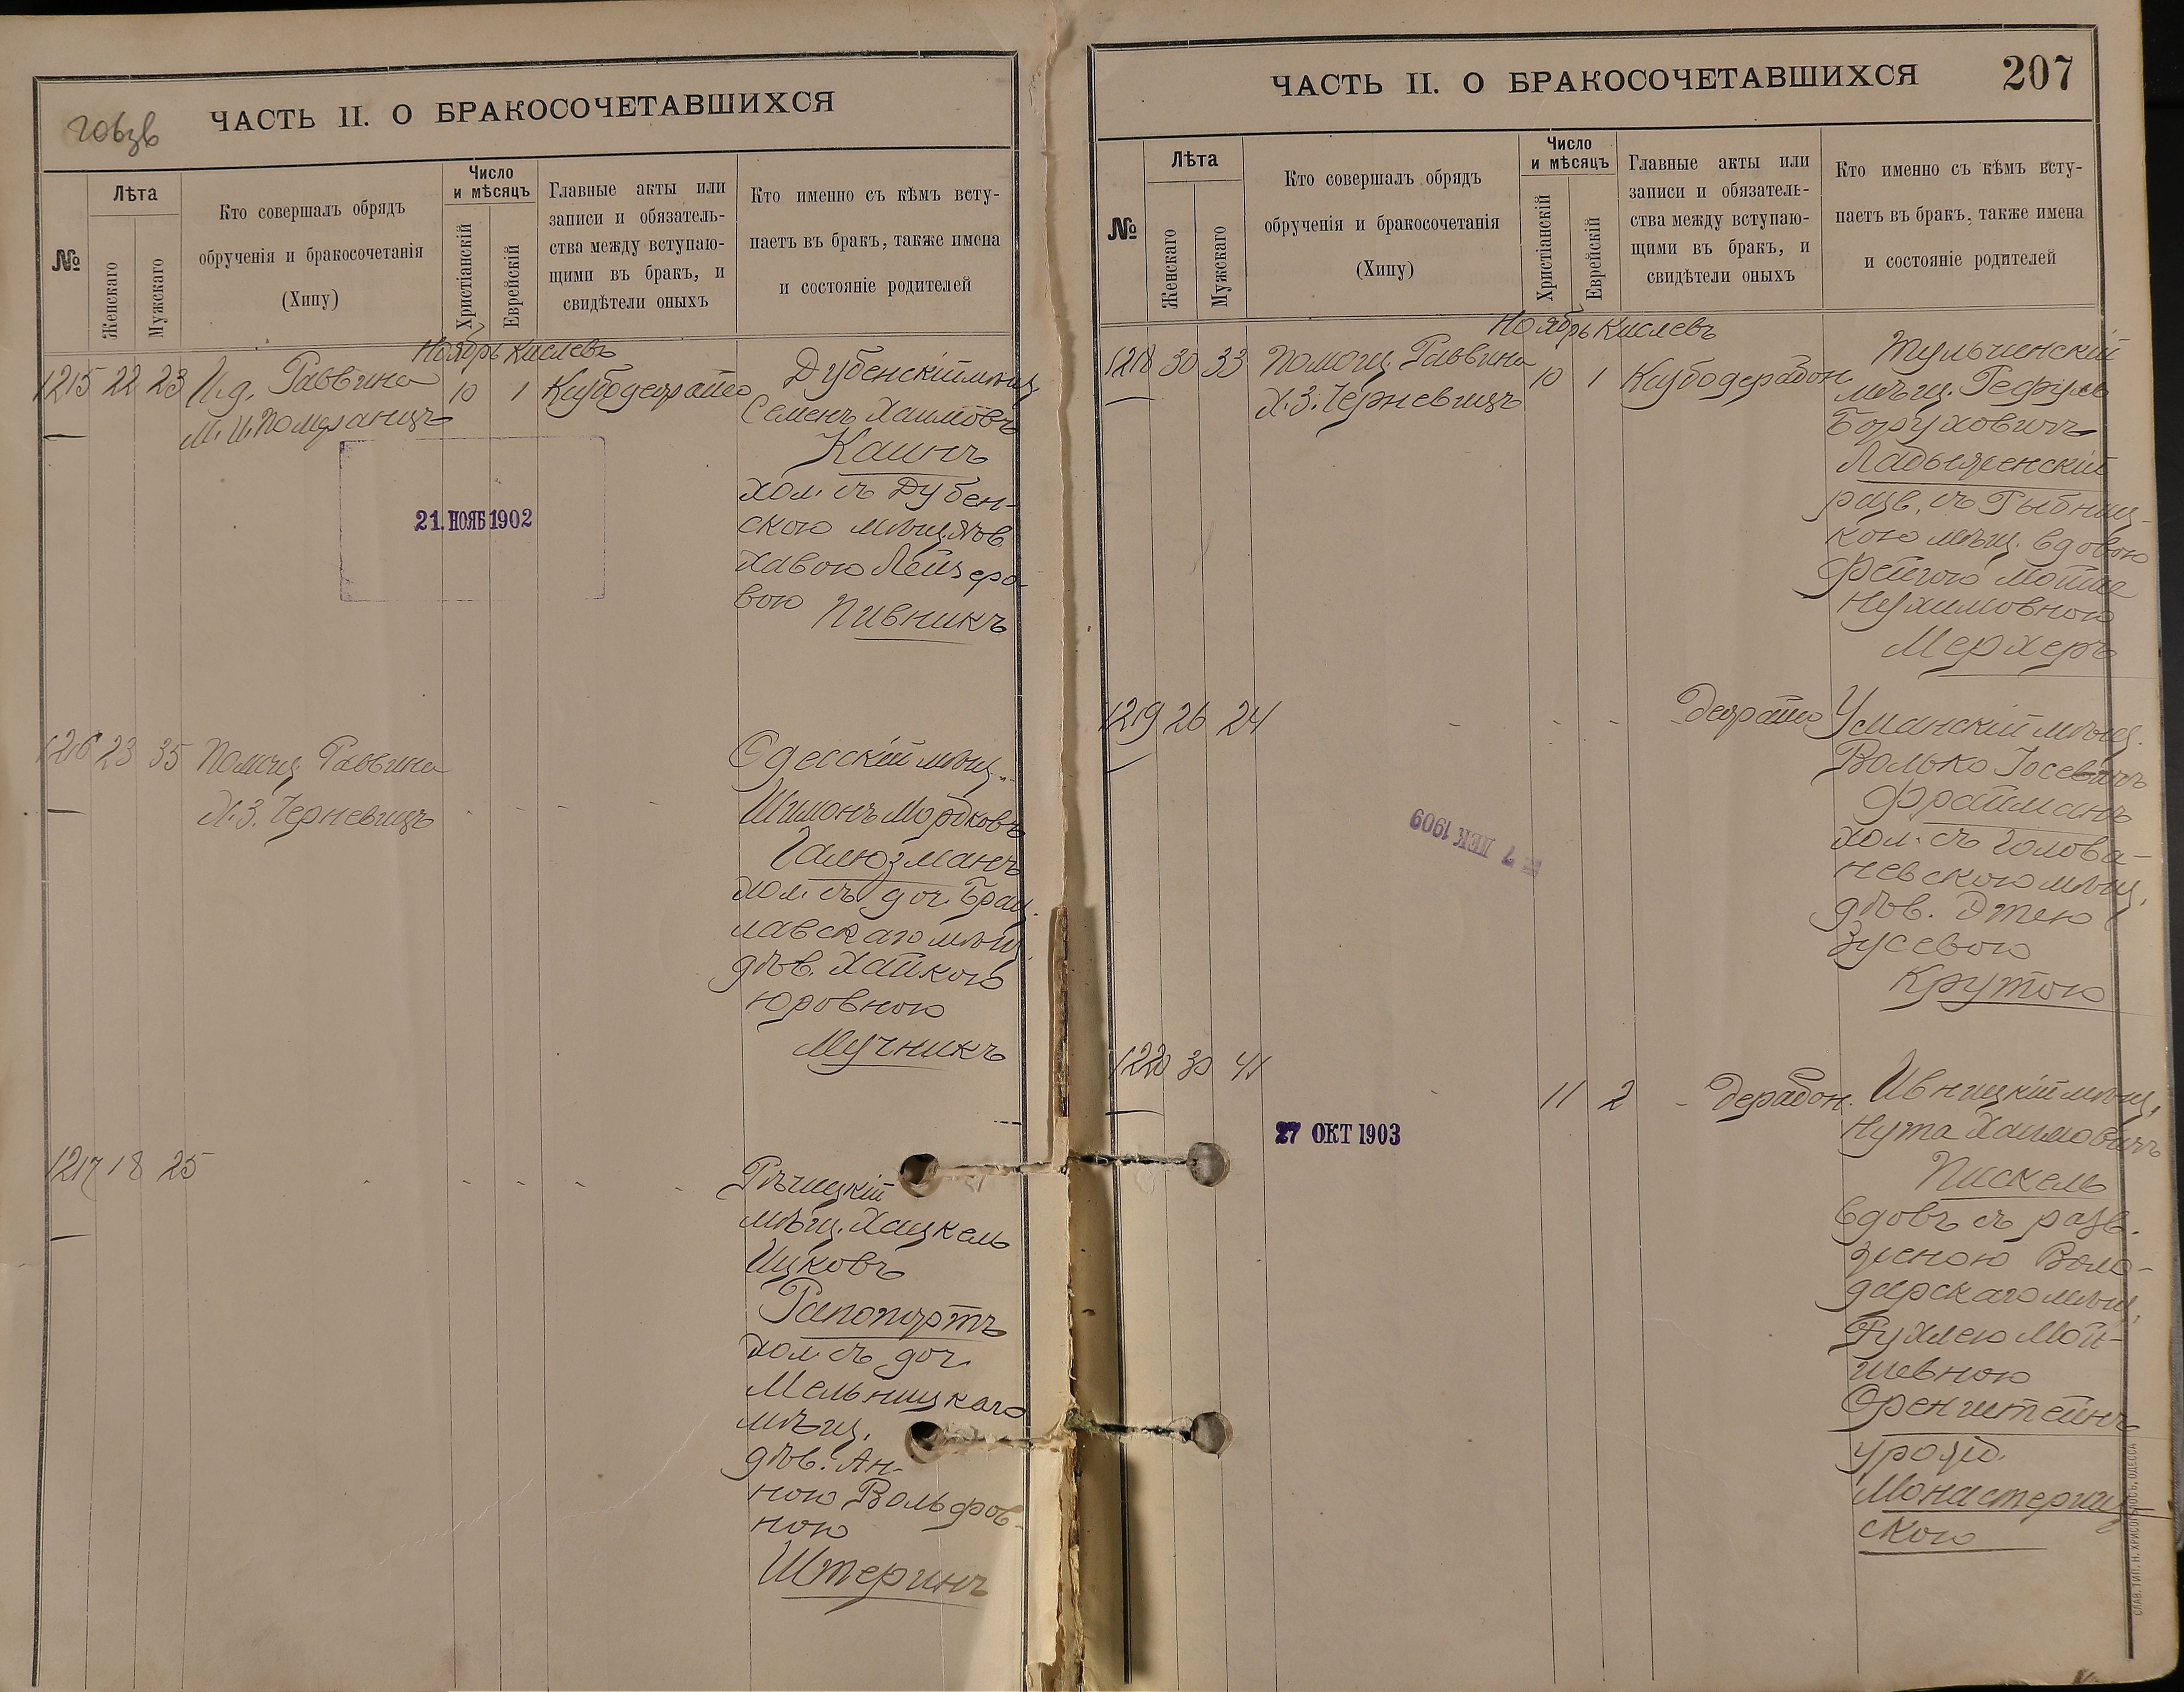 206зв
ЧАСТЬ II. О БРАКОСОЧЕТАВШИХСЯ
№
Лѣта
Женскаго
Мужскаго
Кто совершалъ обрядъ
обрученія и бракосочетанія
(Хипу)
Число
и мѣсяцъ
Христіанскій
Еврейскій
Главные акты или
записи и обязатель-
ства между вступаю-
щими въ бракъ, и
свидѣтели оныхъ
Кто именно съ кѣмъ всту-
паетъ въ бракъ, также имена
и состояніе родителей
Ноябрь Кислевъ
1215 22 23
И.д. Раввина
М. И. Померанцъ
10 1
Дубенскій мѣщ.
Семенъ Хаимовъ
Каинъ
хол. съ Дубен-
скою мѣщ. дѣв.
Хавою Лейзеро-
вою Пивникъ
21. НОЯБ 1902
1216 23 35
Помощ. Раввина
Х.З. Черневицъ
Одесскій мѣщ.
Шимонъ Мордковъ
Галюзманъ
хол. съ доч. Брац-
лавскаго мѣщ.
дѣв. Хайкою
Юровною
Мучникъ
1217 18 25
Рѣчицкій
мѣщ. Хацкель
Ицковъ
Рапопортъ
хол. съ доч.
Мельницкаго
мѣщ.
дѣв. Ан-
ною Вольфов-
ною
Штеринъ
ЧАСТЬ II. О БРАКОСОЧЕТАВШИХСЯ
207
№
Лѣта
Женскаго
Мужскаго
Кто совершалъ обрядъ
обрученія и бракосочетанія
(Хипу)
Число
и мѣсяцъ
Христіанскій
Еврейскій
Главные акты или
записи и обязатель-
ства между вступаю-
щими въ бракъ, и
свидѣтели оныхъ
Кто именно съ кѣмъ всту-
паетъ въ бракъ, также имена
и состояніе родителей
Ноябрь Кислевъ
1218 30 33
Помощ. Раввина
Х.З. Черневицъ
10 1
Тульчинскій
мѣщ. Рефуль
Боруховичъ
Ладыженскій
разв. съ Рыбниц-
кою мѣщ. вдовою
Фейгою Мотше
Нухимовною
Мерхеръ
1219 26 24
Уманскій мѣщ.
Волько Іосевичъ
Фрайманъ
хол. съ Голова-
невскою мѣщ.
дѣв. Этею
Зусевою
Крутою
7 ДЕК 1909
1220 30 41
11 2
Ивницкій мѣщ.
Нута Хаимовичъ
Пискель
вдовъ съ разв.
женою Воло-
дарскаго мѣщ.
Рухлею Мой-
шевною
Оренштейнъ
урожд.
Монастерищ-
скою
27 ОКТ 1903
СЛАВ. ТИП. Н. ХРИСОГЕЛОСЪ, ОДЕССА